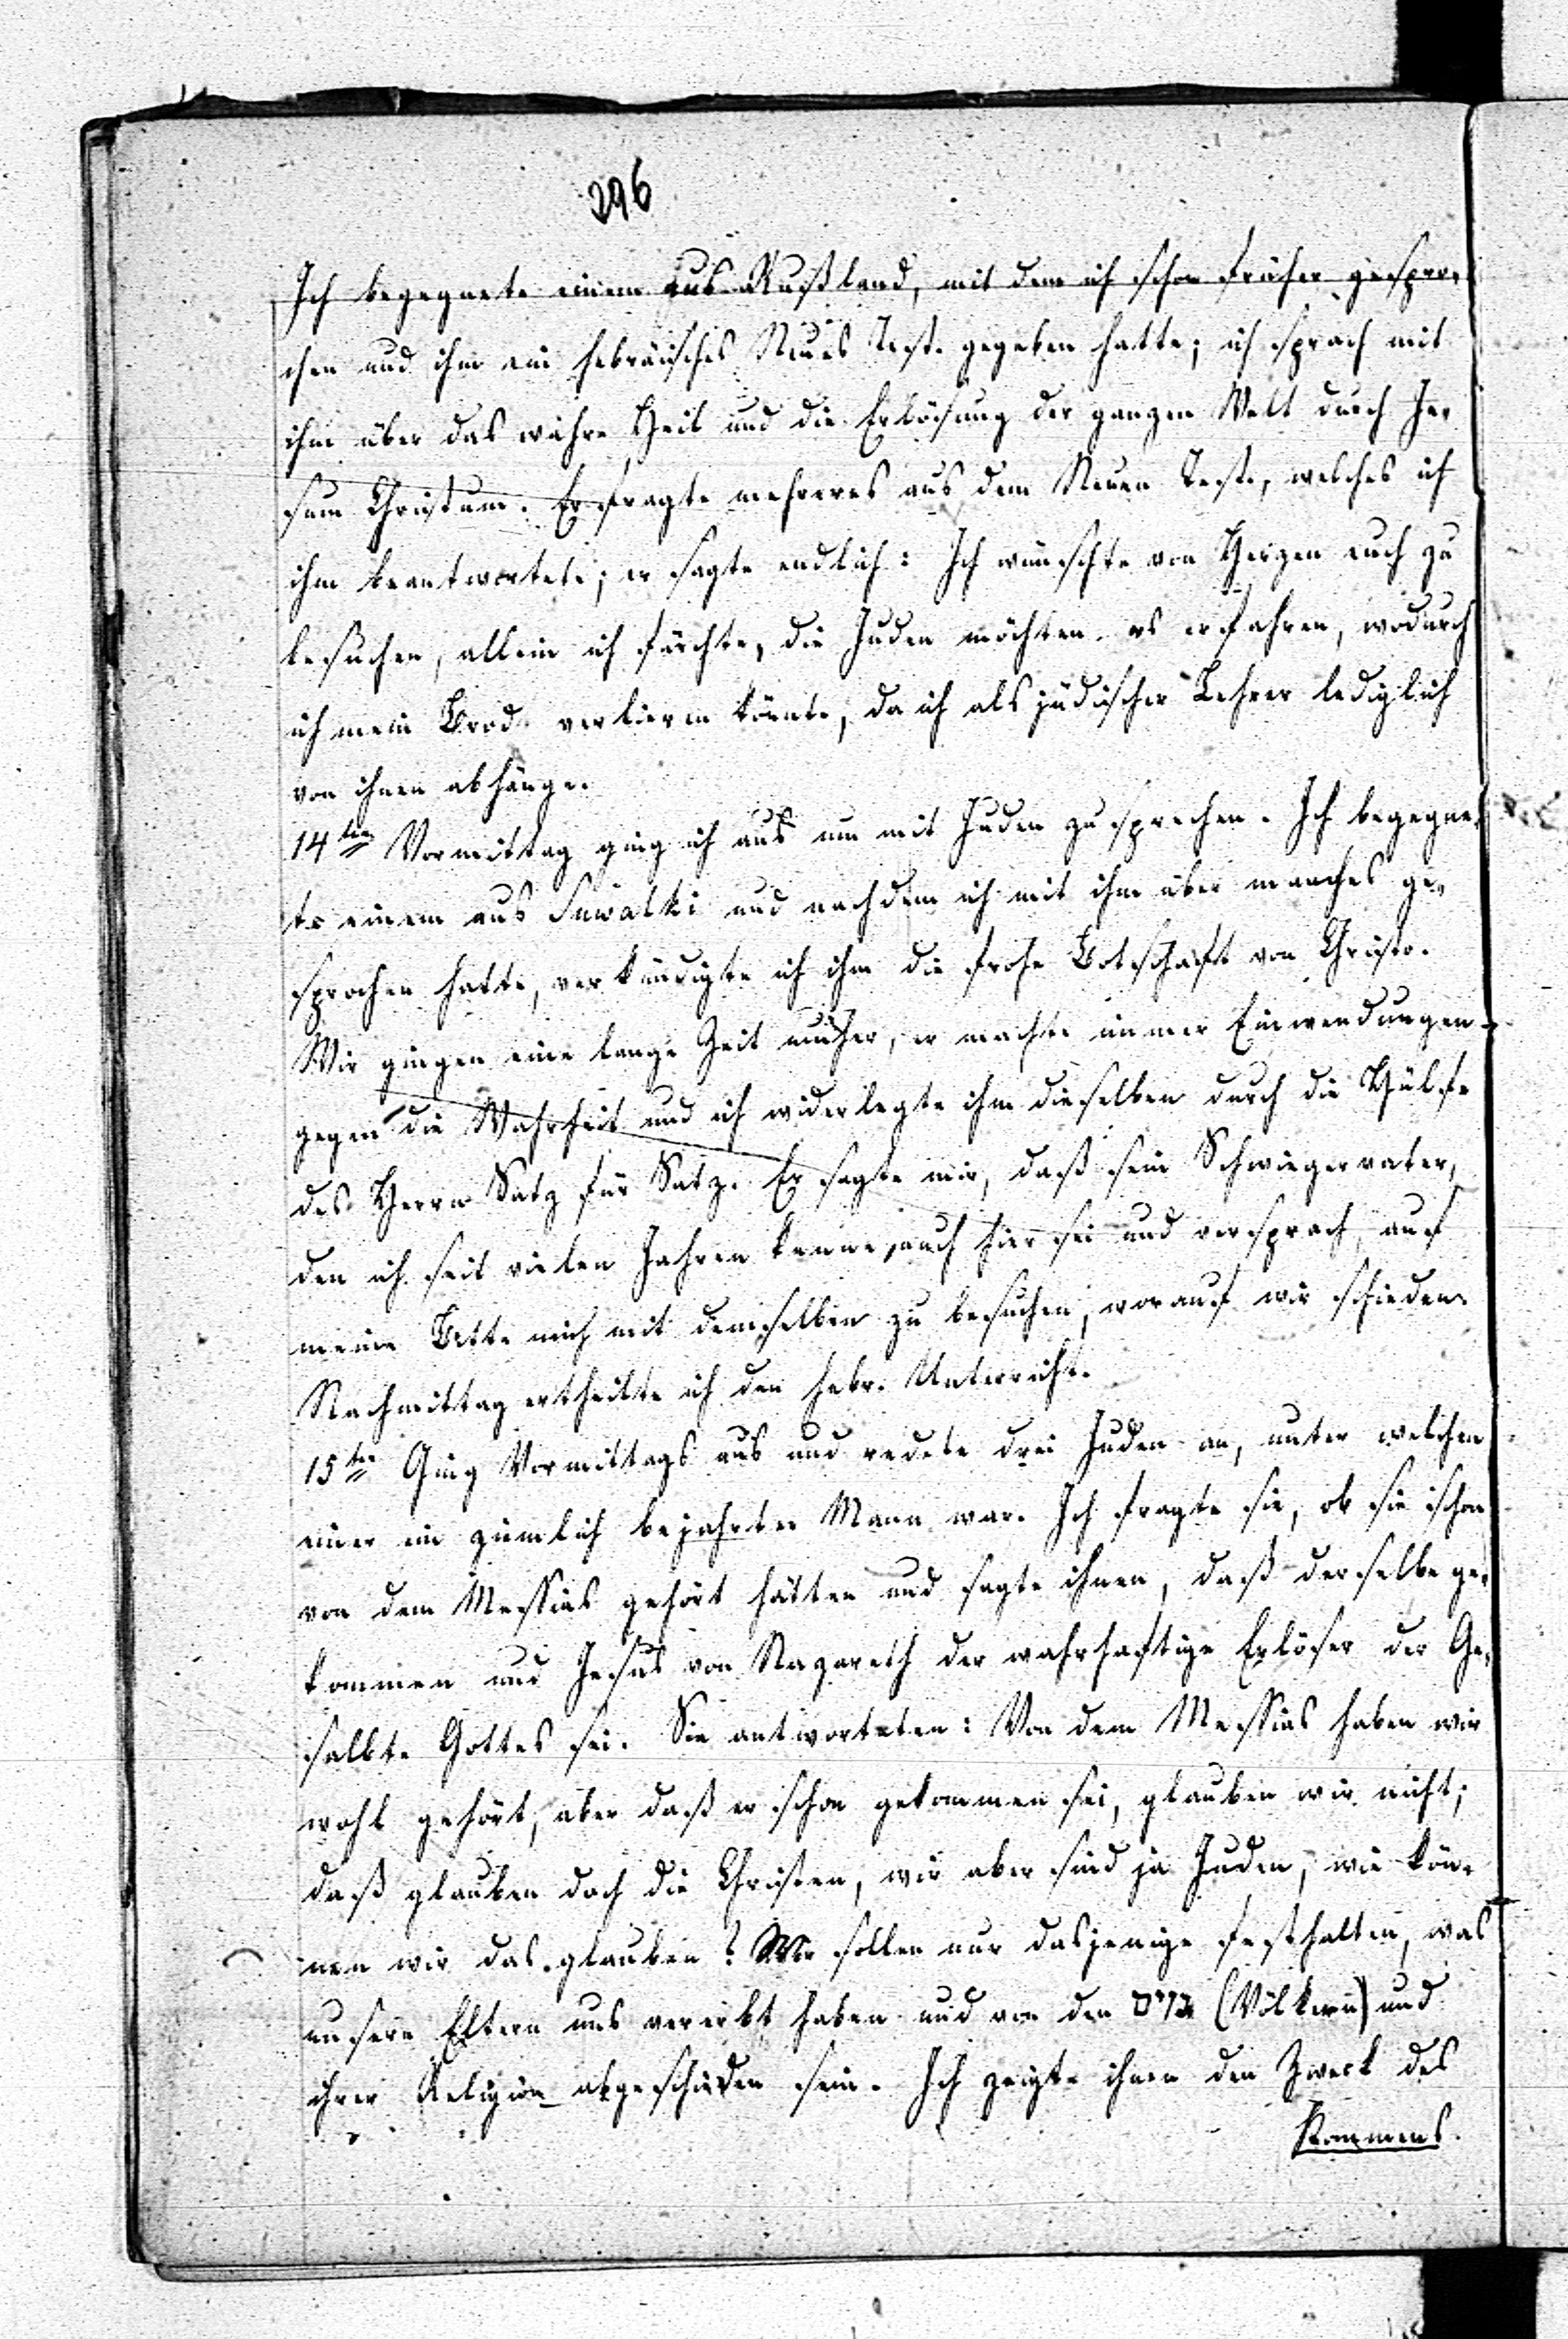 296
Ich begegnete einem aus Rußland, mit dem ich schon früher gespro-
chen und ihm ein hebräisches Neues Test. gegeben hatte; ich sprach mit
ihm über das wahre Heil und die Erlösung der ganzen Welt durch Je-
sum Christum. Er fragte mehreres aus dem Neuen Test., welches ich
ihm beantwortete; er sagte endlich: Ich wünschte von Herzen euch zu
besuchen, allein ich fürchte, die Juden möchten es erfahren, wodurch
ich mein Brod verlieren könnte, da ich als jüdischer Lehrer lediglich
von ihnen abhänge.
14ten Vormittag ging ich aus um mit Juden zu sprechen. Ich begegne-
te einem aus Suwalki und nachdem ich mit ihm über manches ge-
sprochen hatte, verkündigte ich ihm die frohe Botschaft von Christo.
Wir gingen eine lange Zeit umher, er machte immer Einwendungen
gegen die Wahrheit und ich widerlegte ihm dieselben durch die Hülfe
des Herrn Satz für Satz. Er sagte mir, daß sein Schwiegervater,
den ich seit vielen Jahren kenne, auch hier sei und versprach, auf
meine Bitte mich mit demselben zu besuchen, worauf wir schieden.
Nachmittag ertheilte ich den hebr. Unterricht.
15ten Ging Vormittags aus und redete drei Juden an, unter welchen
einer ein ziemlich bejahrter Mann war. Ich fragte sie, ob sie schon
von dem Messias gehört hätten und sagte ihnen, daß derselbe ge-
kommen und Jesus von Nazareth der wahrhaftige Erlöser der Ge-
salbte Gottes sei. Sie antworteten: Von dem Messias haben wir
wohl gehört, aber daß er schon gekommen sei, glauben wir nicht;
daß glauben doch die Christen, wir aber sind ja Juden, wie kön-
nen wir das glauben? Wir sollen nur dasjenige festhalten, was
unsere Eltern uns vererbt haben und von den גוים (Völkern) und
ihrer Religion abgeschieden sein. Ich zeigte ihnen den Zweck des
Kommens